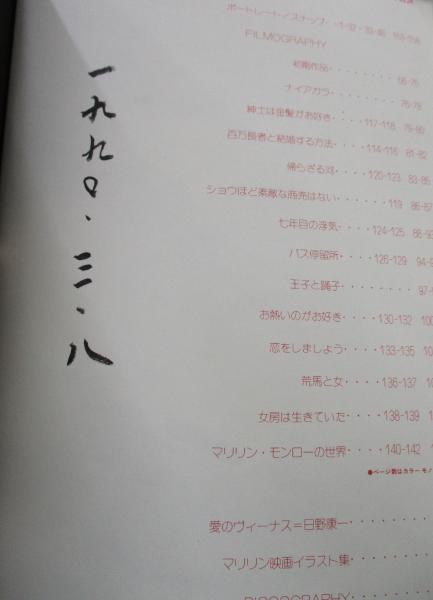 一九九〇・三・八
ポートレート／スナップ・・1-32・33-65 153-154
FILMOGRAPHY
初期作品・・・・・・・・66-75
ナイアガラ・・・・・・・・76-78
紳士は金髪がお好き・・・・117-118 79-80
百万長者と結婚する方法・・・・114-116 81-82
帰らざる河・・・・120-123 83-85
ショウほど素敵な商売はない・・・・・119 86-87
七年目の浮気・・・・124-125 88-9
バス停留所・・・・126-129 94-9
王子と踊子・・・・・・・・97-
お熱いのがお好き・・・・130-132 100
恋をしましょう・・・・133-135 10
荒馬と女・・・・136-137 10
女房は生きていた・・・・138-139 1
マリリン・モンローの世界・・・・140-142 1
●ページ数はカラー モノ
愛のヴィーナス=日野康一・・・・・・
マリリン映画イラスト集・・・・・・